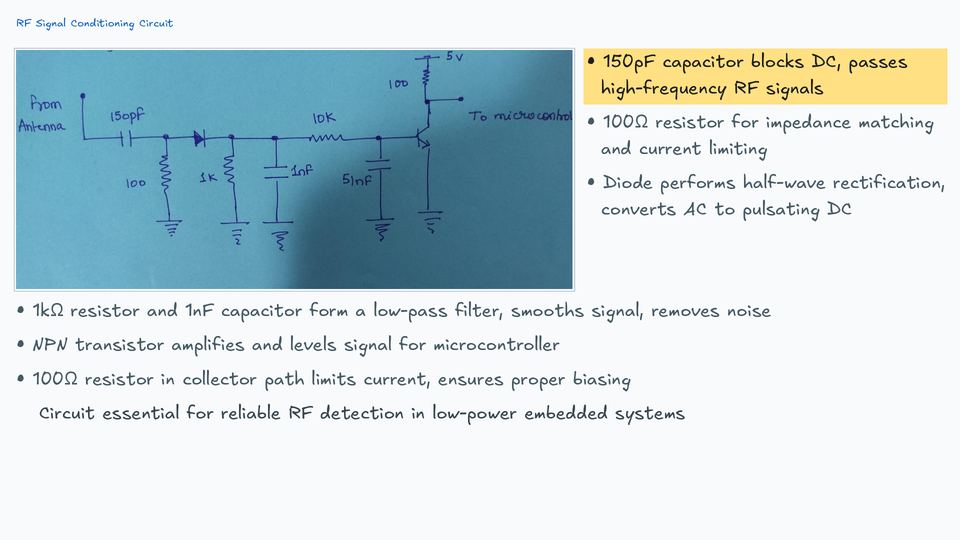 RF Signal Conditioning Circuit
5v
100
from
Antenna
150pF
10K
To microcontrol
100
1K
1nF
51nF
• 150pF capacitor blocks DC, passes
high-frequency RF signals
• 100Ω resistor for impedance matching
and current limiting
• Diode performs half-wave rectification,
converts AC to pulsating DC
• 1kΩ resistor and 1nF capacitor form a low-pass filter, smooths signal, removes noise
• NPN transistor amplifies and levels signal for microcontroller
• 100Ω resistor in collector path limits current, ensures proper biasing
Circuit essential for reliable RF detection in low-power embedded systems